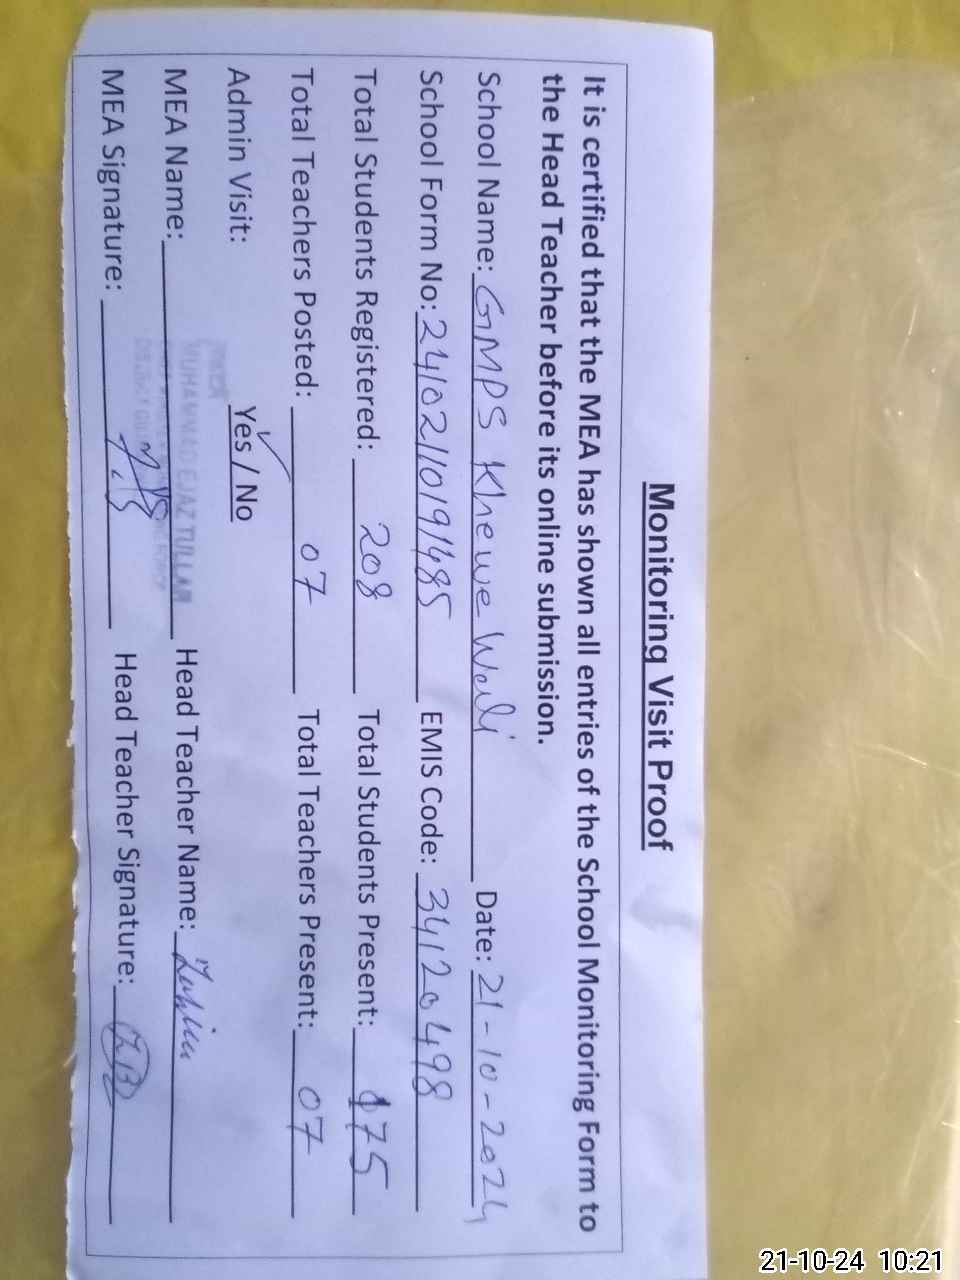 Monitoring Visit Proof
It is certified that the MEA has shown all entries of the School Monitoring Form to
the Head Teacher before its online submission.
School Name: GMPS Khewe Wali Date: 21-10-2024
School Form No: EMIS Code: 34120498
Total Students Registered: 208 Total Students Present: 175
Total Teachers Posted: 07 Total Teachers Present: 07
Admin Visit: Yes / No
MEA Name: MUHAMMAD EJAZ TULLAH Head Teacher Name:
MEA Signature: Head Teacher Signature:
21-10-24 10:21